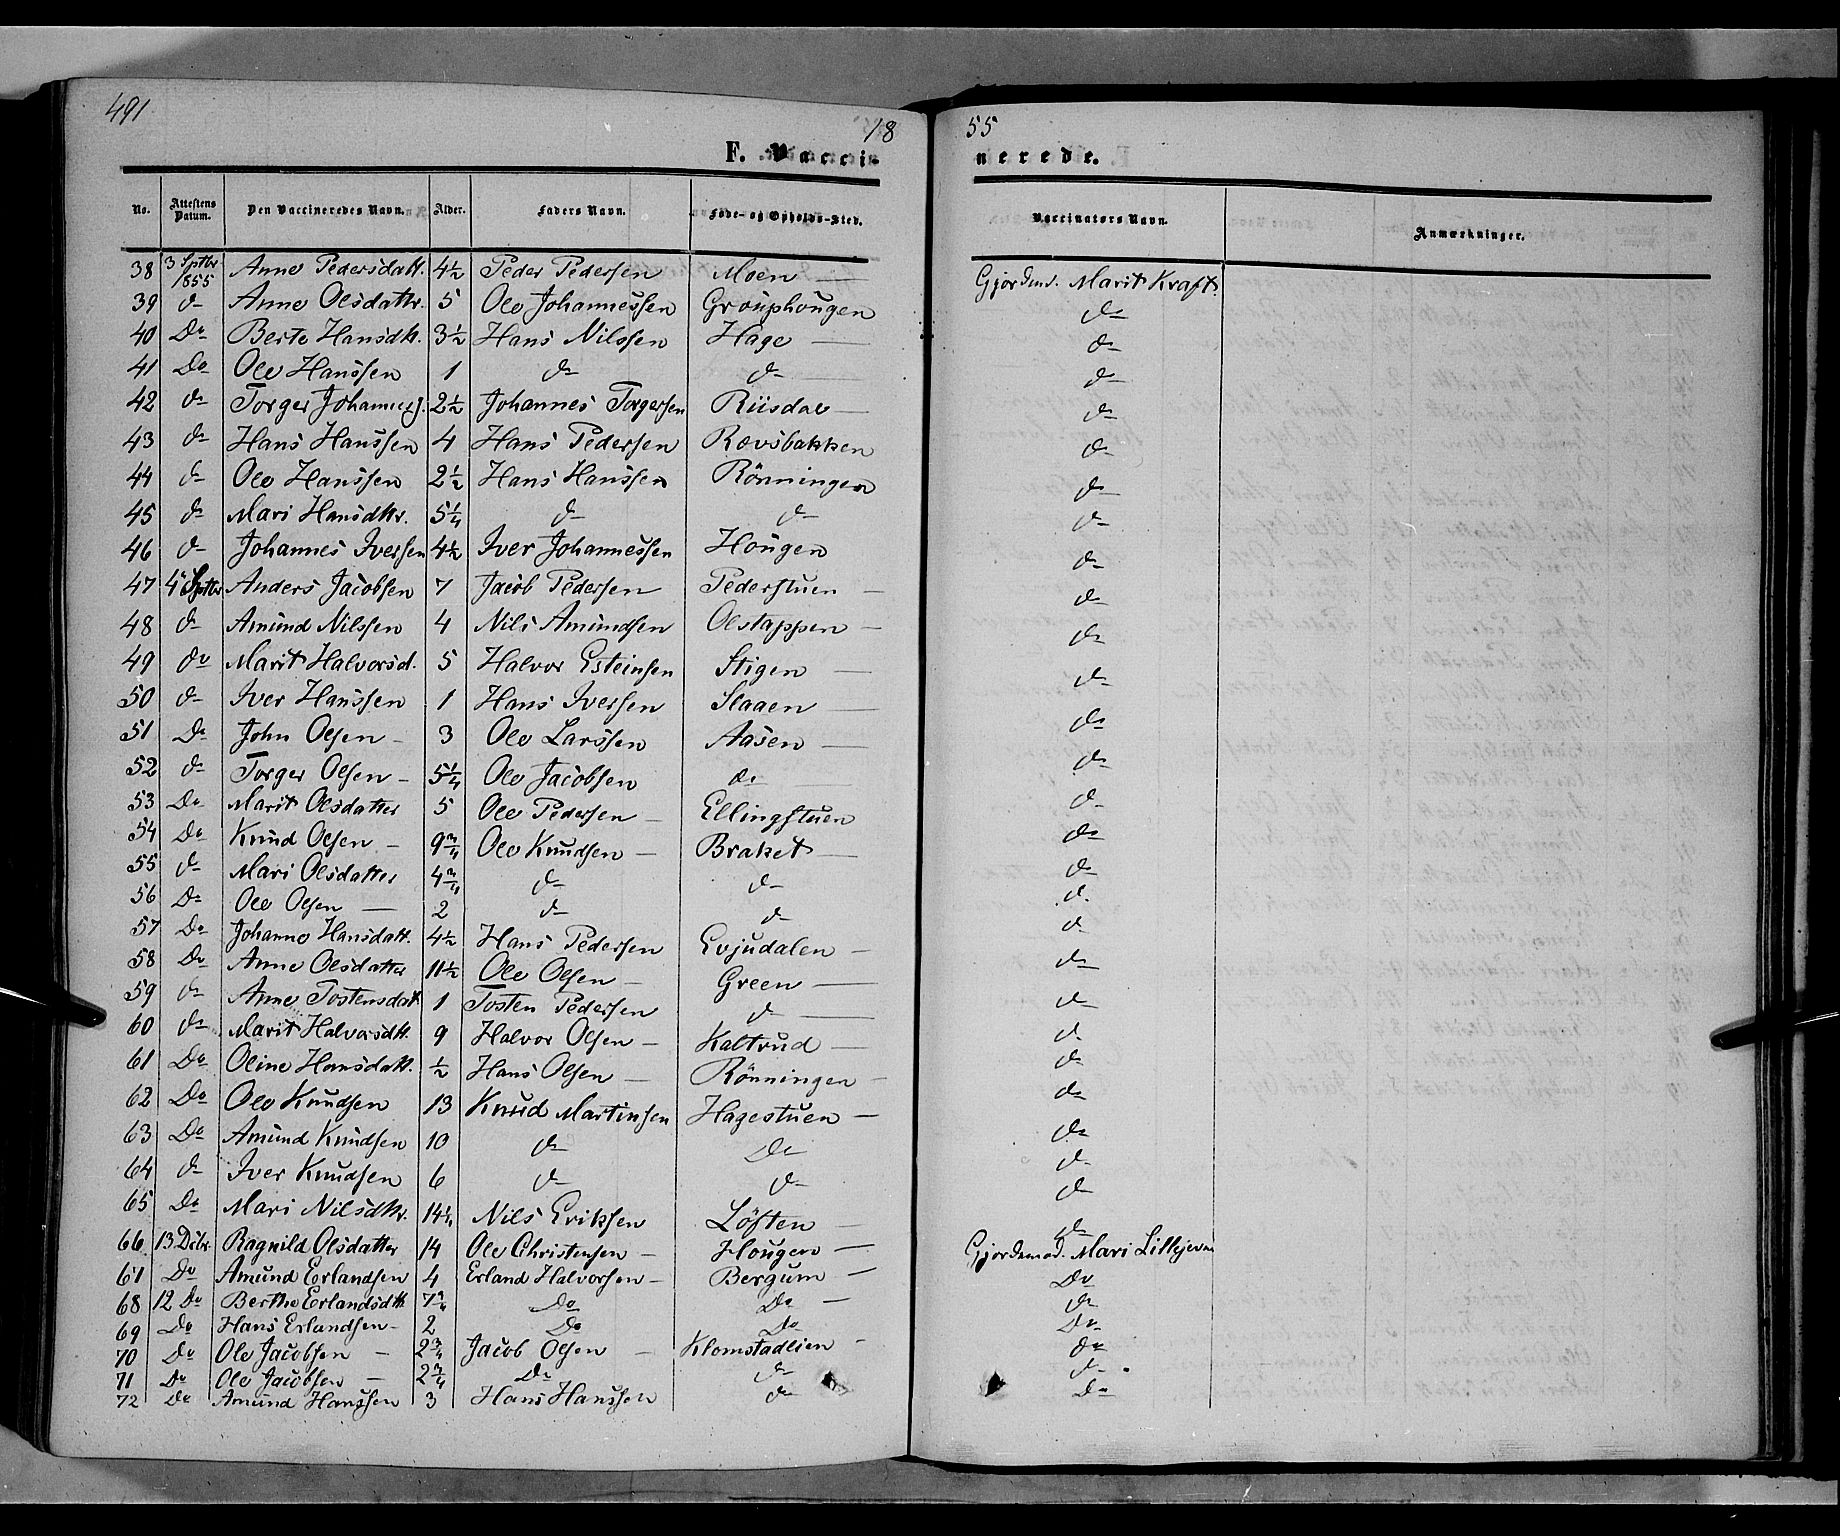 491
18 55
F. Vaccinerede.
No. Attestens Datum. Den Vaccineredes Navn. Alder. Faders Navn. Føde- og Opholds-Sted. Vaccinators Navn. Anmærkninger.
38 3 Sptbr 1855 Anne Pedersdatt. 4½ Peder Pedersen Moen — Gjordmd. Marit Kraft.
39 do Anne Olsdattr. 5 Ole Johannessen Grouphougen do
40 Do Berte Hansdtr. 3½ Hans Nilssen Hage — do
41 Do Ole Hanssen 1 do do do
42 do Torger Johannes. 2½ Johannes Torgersen Riisdal — do
43 do Hans Hanssen 4 Hans Pedersen Rævsbakken do
44 do Ole Hanssen 2½ Hans Hanssen Rönningen do
45 do Mari Hansdtr. 5¼ do do do
46 do Johannes Iversen 4½ Iver Johannessen Hougen do
47 4 Sptbr Anders Jacobsen 7 Jacob Pedersen Pederstuen — do
48 do Amund Nilssen 4 Nils Amundsen Olstappen — do
49 do Marit Halvorsd. 5 Halvor Esteinsen Stigen — do
50 do Iver Hanssen 1 Hans Iversen Slaaen — do
51 Do John Olsen — 3 Ole Larssen Aasen — do
52 do Torger Olsen — 5¼ Ole Jacobsen do do
53 Do Marit Olsdatter 5 Ole Pedersen — Ellingstuen do
54 Do Knud Olsen — 9¾ Ole Knudsen — Braket — do
55 do Mari Olsdatter 4¾ do do do
56 Do Ole Olsen — 2 do do do
57 Do Johanne Hansdatt. 4½ Hans Pedersen Evjudalen — do
58 Do Anne Olsdatter 11½ Ole Olsen — Green — do
59 do Anne Tostensdatt. 1 Tosten Pedersen do do
60 do Marit Halvorsdtt. 9 Halvor Olsen — Kaltrud — do
61 Do Oline Hansdatt. ½ Hans Olsen — Rönningen — do
62 Do Ole Knudsen 13 Knud Martinsen Hagestuen — do
63 Do Amund Knudsen 10 do Do do
64 do Iver Knudsen 6 do do do
65 Do Mari Nilsdtr. 14¼ Nils Eriksen Löften — do
66 13 Dcbr. Ragnild Olsdatter 14 Ole Christensen — Hougen — Gjordemod. Mari Lillejevne
61 Do Amund Erlandsen 4 Erland Halvorsen — Bergum — Do
68 12 Do Berthe Erlandsdtt. 7¾ Do Do — do
69 Do Hans Erlandsen — 2 Do Do Do
70 Do Ole Jacobsen — 2¾ Jacob Olsen — Klomstadlien — do
71 Do Ole Jacobsen — 2¾ Do do do
72 Do Amund Hanssen 3 Hans Hanssen do Do